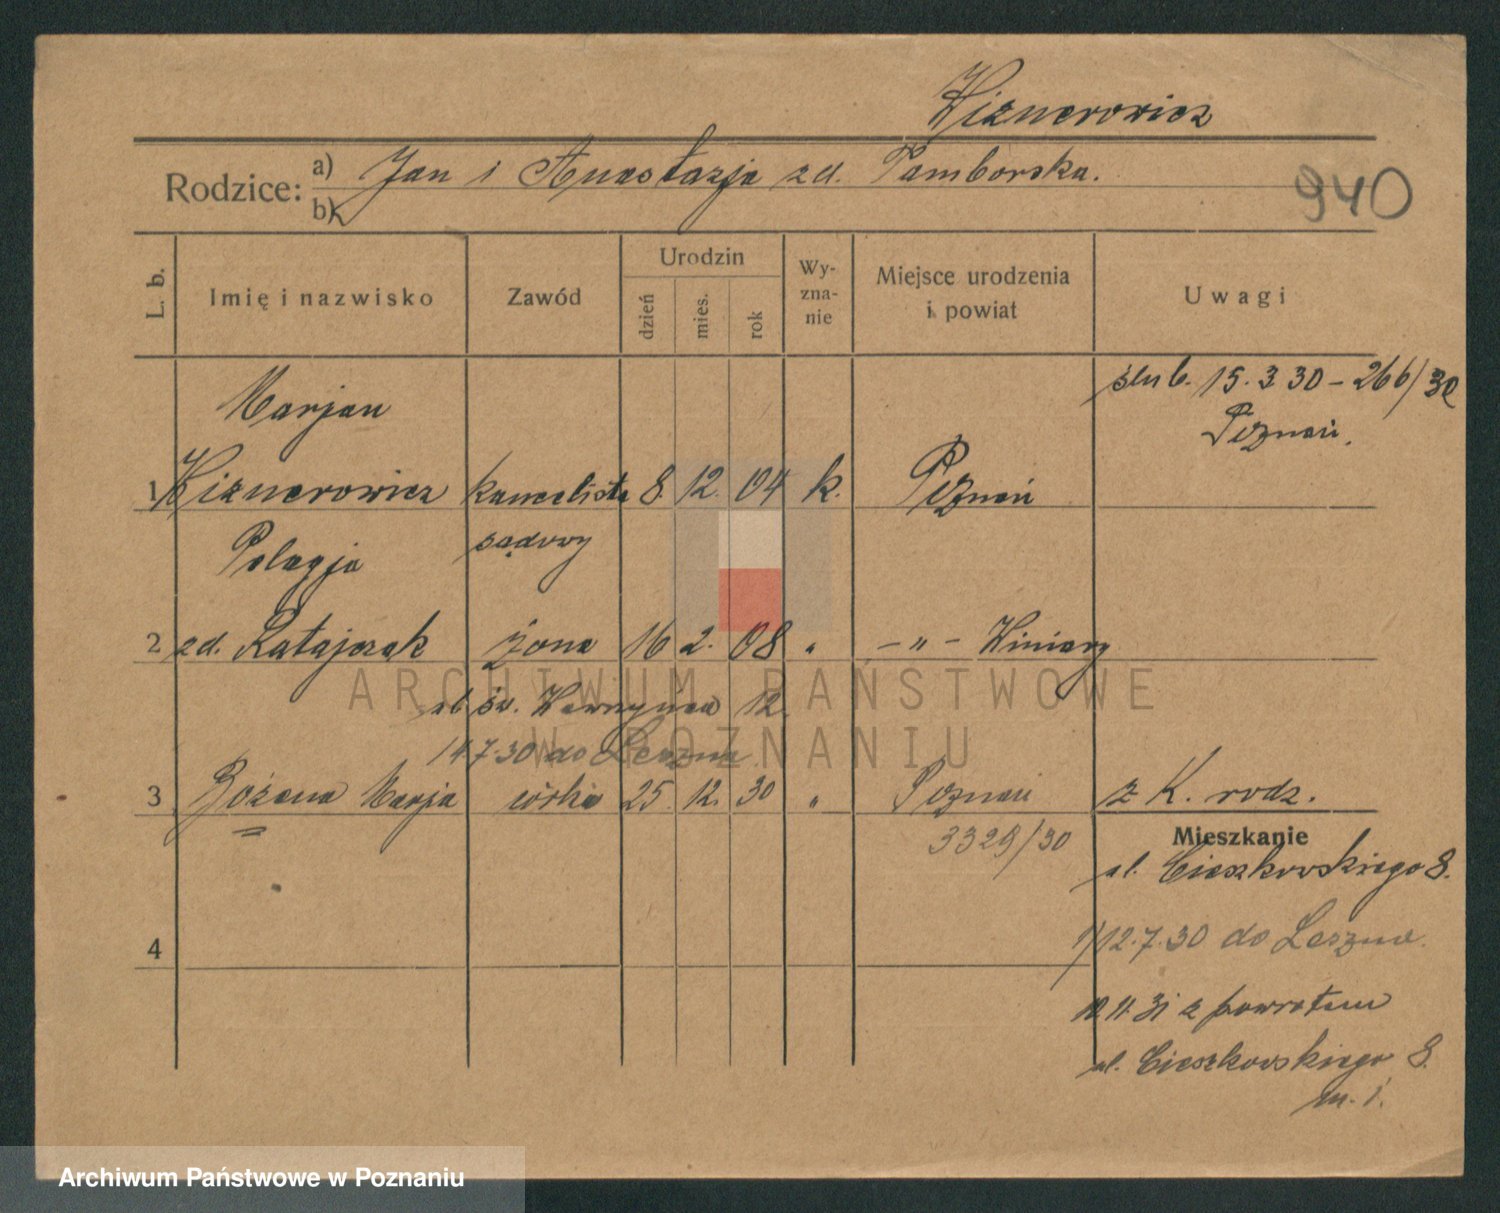 Wiznerowicz
Rodzice: a) Jan i Anastazja zd. Pamborska.
b)
940
L. b.
Imię i nazwisko
Zawód
Urodzin
dzień
mies.
rok
Wy-
zna-
nie
Miejsce urodzenia
i powiat
Uwagi
ślub. 15.3 30 - 266/30
Poznań.
Marjan
1 Wiznerowicz kancelista 8. 12. 04 k. Poznań
sądowy
Pelagja
2 zd. Ratajczak żona 16 2. 08 " - " - Winiary
ul. św. Wawrzyńca 12.
14.7.30 do Leszna
3 Bożena Marja córka 25. 12. 30 " Poznań z K. rodz.
3329/30
Mieszkanie
ul. Cieszkowskiego 8.
12.7.30 do Leszna.
4
z powrotem
ul. Cieszkowskiego 8.
m. 1.
ARCHIWUM PAŃSTWOWE
W POZNANIU
Archiwum Państwowe w Poznaniu